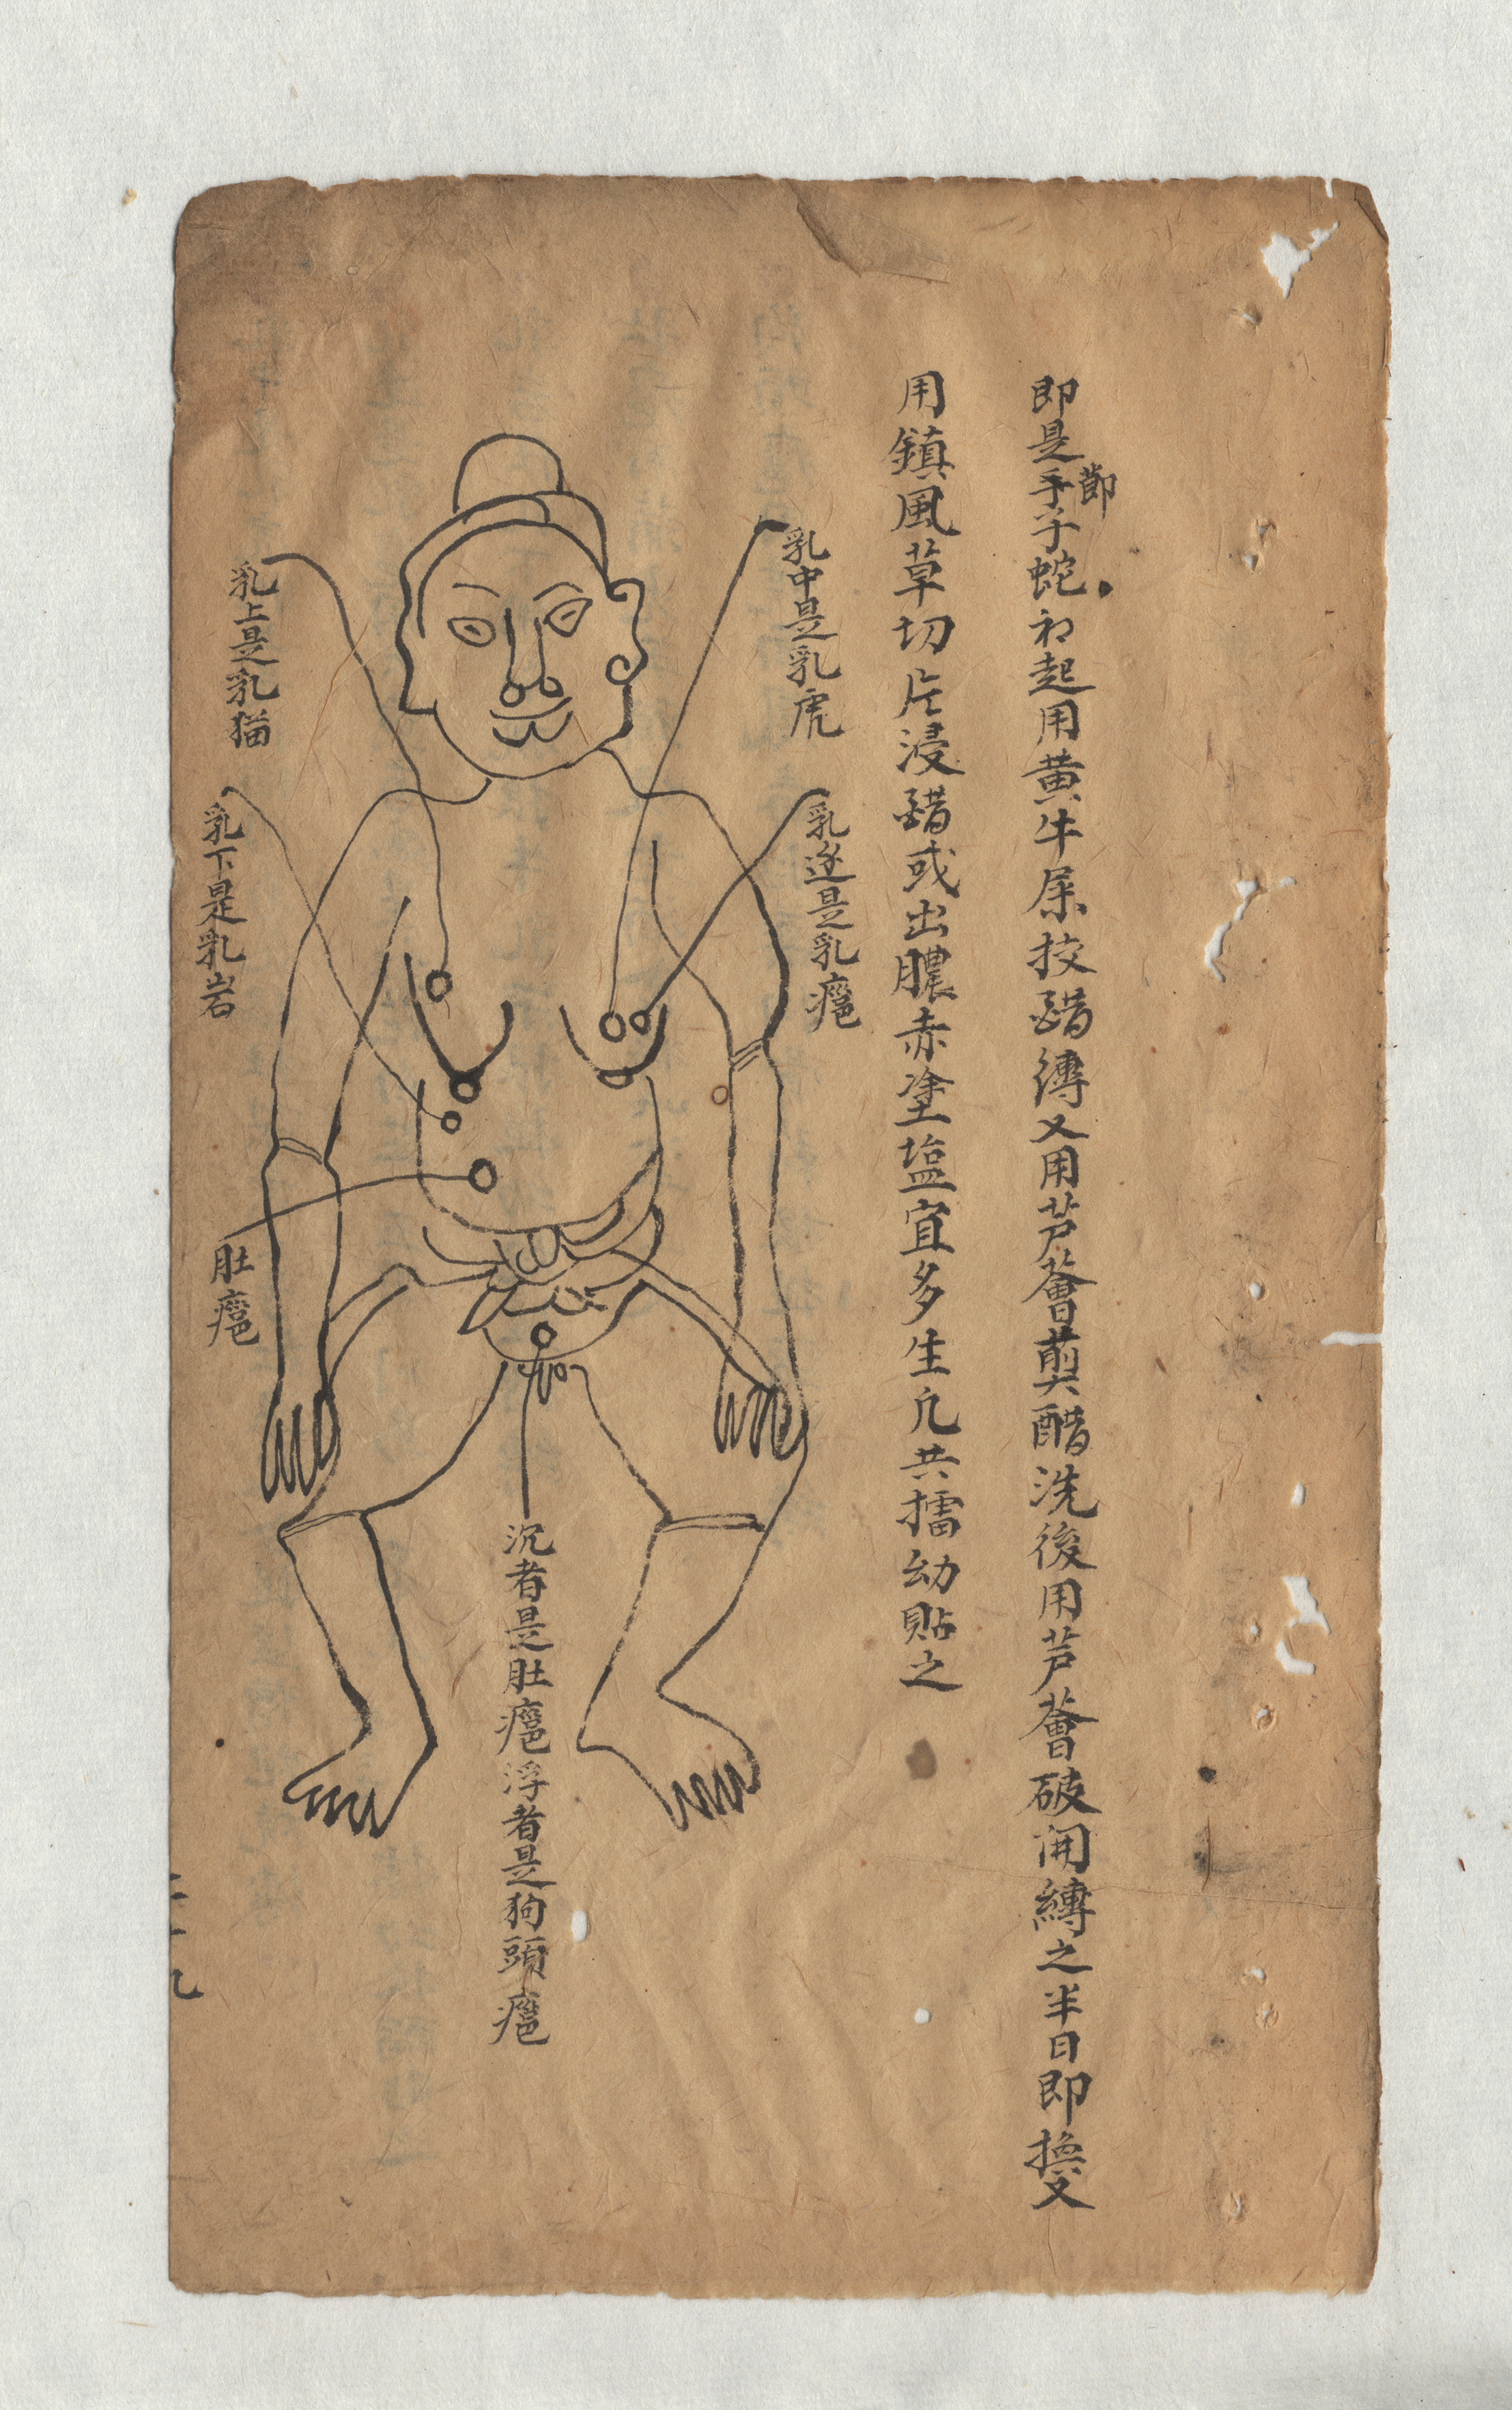 即是手節字蛇初起用黄牛屎挍醋縛又用芦薈煎醋洗後用芦薈破開縛之半日即換又
用鎮風草切片浸醋或出膿赤塗塩宜多生凡共擂幼貼之
乳中是乳虎
乳邊是乳癰
乳上是乳猫
乳下是乳岩
肚癰
沉者是肚癰浮者是狗頭癰